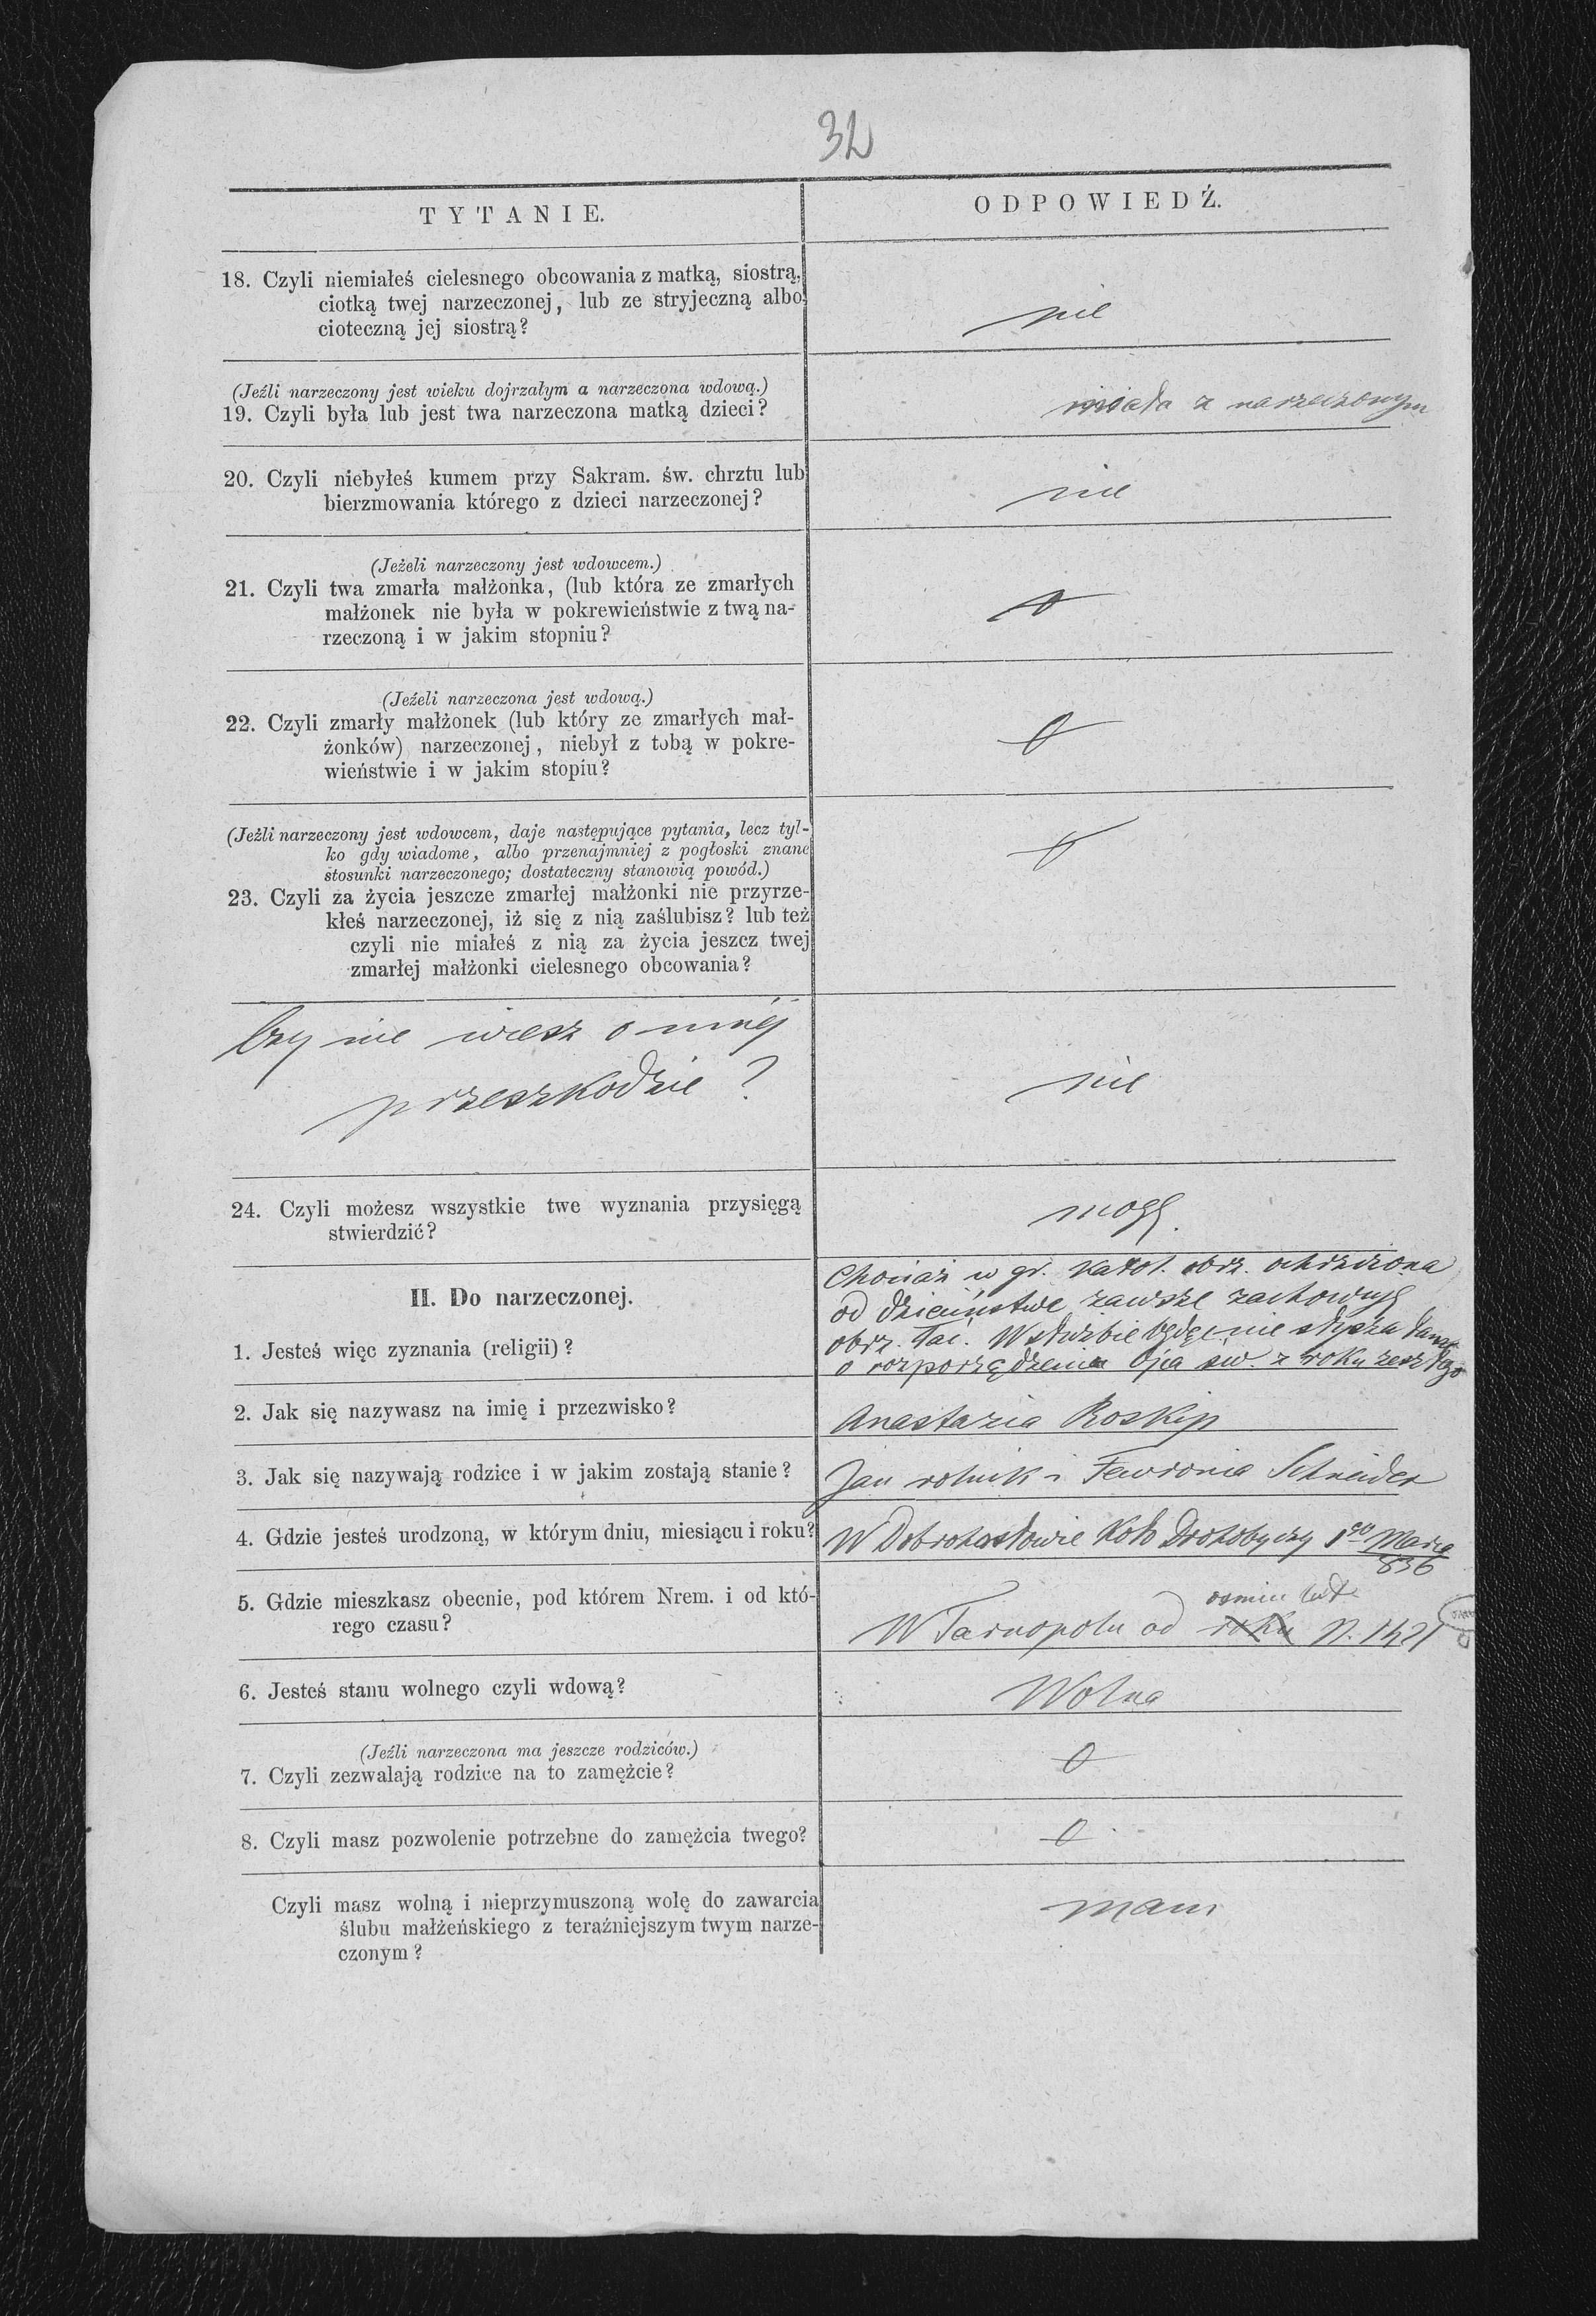 32
TYTANIE.
ODPOWIEDŹ.
18. Czyli niemiałeś cielesnego obcowania z matką, siostrą,
ciotką twej narzeczonej, lub ze stryjeczną albo
cioteczną jej siostrą?
nie
(Jeźli narzeczony jest wieku dojrzałym a narzeczona wdową.)
19. Czyli była lub jest twa narzeczona matką dzieci?
miała z narzeczonym
20. Czyli niebyłeś kumem przy Sakram. św. chrztu lub
bierzmowania którego z dzieci narzeczonej?
nie
(Jeżeli narzeczony jest wdowcem.)
21. Czyli twa zmarła małżonka, (lub która ze zmarłych
małżonek nie była w pokrewieństwie z twą na-
rzeczoną i w jakim stopniu?
0
(Jeżeli narzeczona jest wdową.)
22. Czyli zmarły małżonek (lub który ze zmarłych mał-
żonków) narzeczonej, niebył z tobą w pokre-
wieństwie i w jakim stopiu?
0
(Jeźli narzeczony jest wdowcem, daje następujące pytania, lecz tyl-
ko gdy wiadome, albo przenajmniej z pogłoski znane
stosunki narzeczonego; dostateczny stanowią powód.)
23. Czyli za życia jeszcze zmarłej małżonki nie przyrze-
kłeś narzeczonej, iż się z nią zaślubisz? lub też
czyli nie miałeś z nią za życia jeszcz twej
zmarłej małżonki cielesnego obcowania?
0
Czy nie wiesz o innej
przeszkodzie?
nie
24. Czyli możesz wszystkie twe wyznania przysięgą
stwierdzić?
mogę.
II. Do narzeczonej.
1. Jesteś więc zyznania (religii)?
Chociaż w gr. katol. obrz. ochrzczona
od dzieciństwa zawsze zachowuję
obrz. łać. W służbie będąc nie słyszałam
o rozporządzeniu Ojca św. z roku zeszłego
2. Jak się nazywasz na imię i przezwisko?
Anastazia Roskip
3. Jak się nazywają rodzice i w jakim zostają stanie?
Jan rolnik i Fewronia Schneider
4. Gdzie jesteś urodzoną, w którym dniu, miesiącu i roku?
W Dobrohostowie koło Drohobyczy 1go Marca
836
5. Gdzie mieszkasz obecnie, pod którem Nrem. i od któ-
rego czasu?
osmiu lat
W Tarnopolu od roku N. 1421
6. Jesteś stanu wolnego czyli wdową?
Wolna
(Jeźli narzeczona ma jeszcze rodziców.)
7. Czyli zezwalają rodzice na to zamężcie?
0
8. Czyli masz pozwolenie potrzebne do zamężcia twego?
0
Czyli masz wolną i nieprzymuszoną wolę do zawarcia
ślubu małżeńskiego z teraźniejszym twym narze-
czonym?
mam